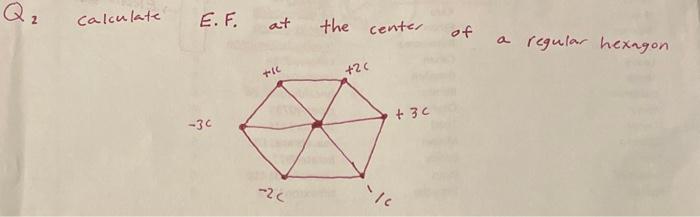 Q2 calculate E.F. at the center of a regular hexagon
+1C +2C
-3C + 3C
-2C -1C